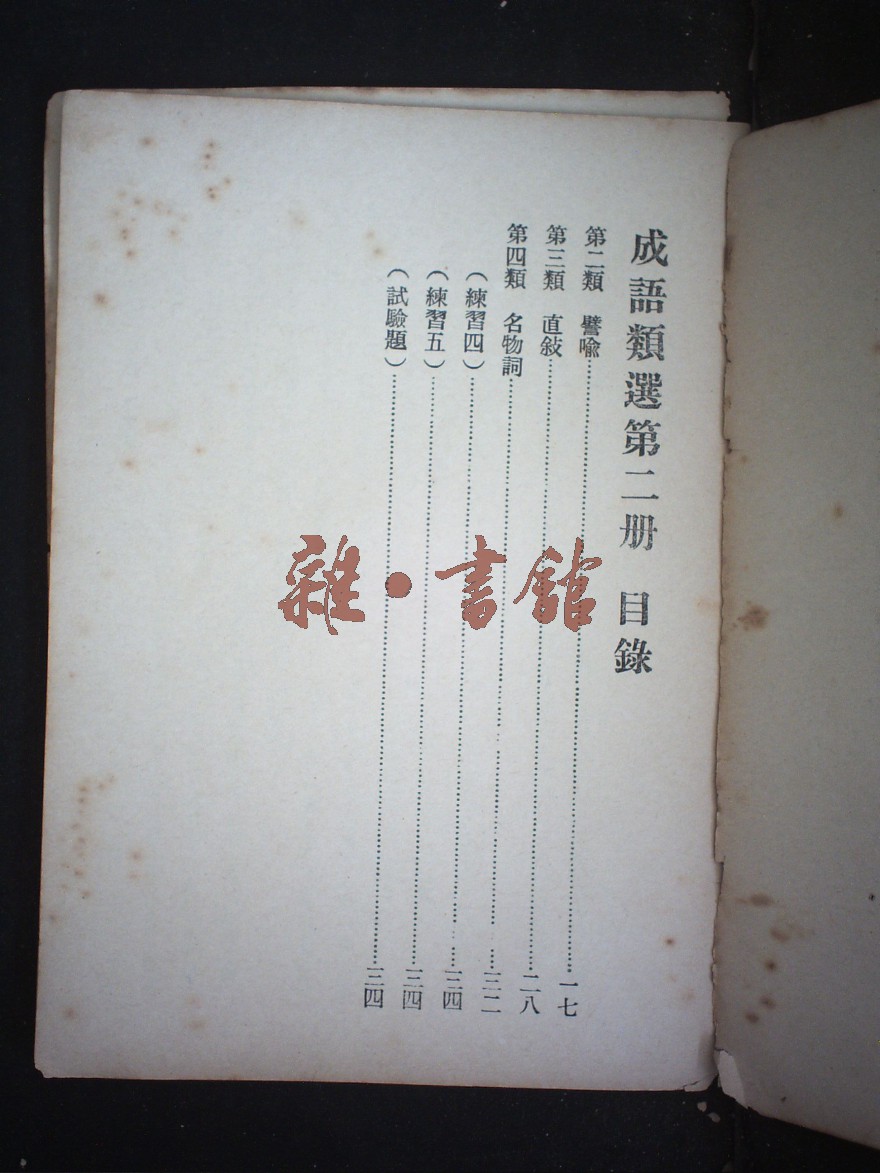 成語類選第二册 目錄
第二類 譬喩……一七
第三類 直敍……二八
第四類 名物詞……三二
（練習四）……三四
（練習五）……三四
（試驗題）……三四
雜·書館